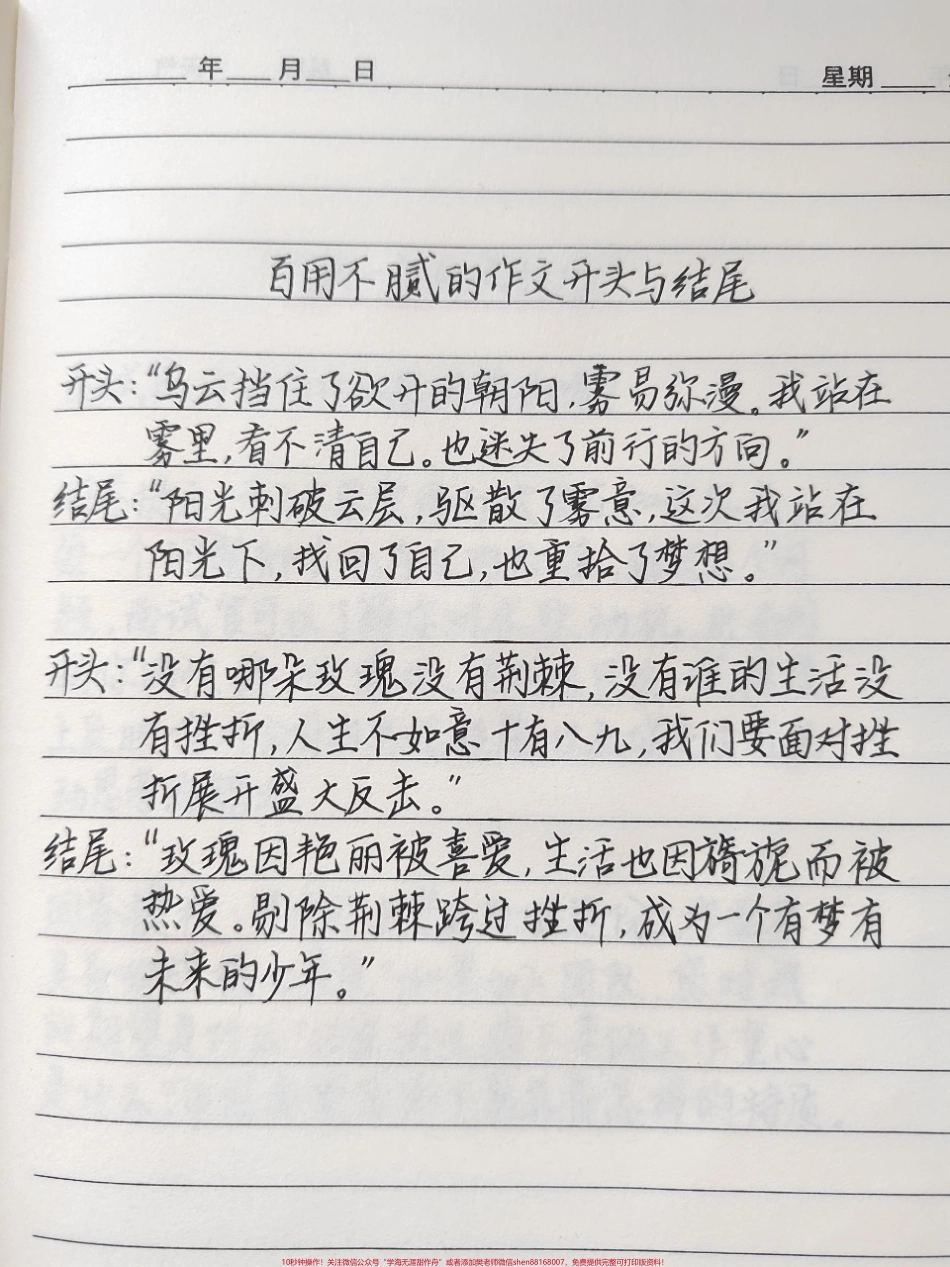 ____年____月____日 星期____
百用不腻的作文开头与结尾
开头:“乌云挡住了欲开的朝阳,雾易弥漫。我站在
雾里,看不清自己。也迷失了前行的方向。”
结尾:“阳光刺破云层,驱散了雾意,这次我站在
阳光下,找回了自己,也重拾了梦想。”
开头:“没有哪朵玫瑰没有荆棘,没有谁的生活没
有挫折,人生不如意十有八九,我们要面对挫
折展开盛大反击。”
结尾:“玫瑰因艳丽被喜爱,生活也因旖旎而被
热爱。剔除荆棘跨过挫折,成为一个有梦有
未来的少年。”
10秒钟操作!关注微信公众号“学海无涯甜作舟”或者添加樊老师微信shen88168007、免费提供完整可打印版资料!